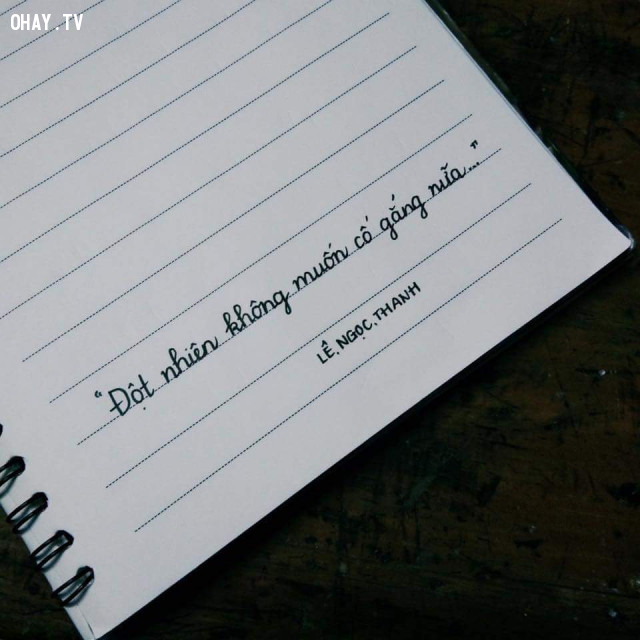 OHAY.TV
“Đột nhiên không muốn cố gắng nữa...”
LÊ.NGỌC.THANH